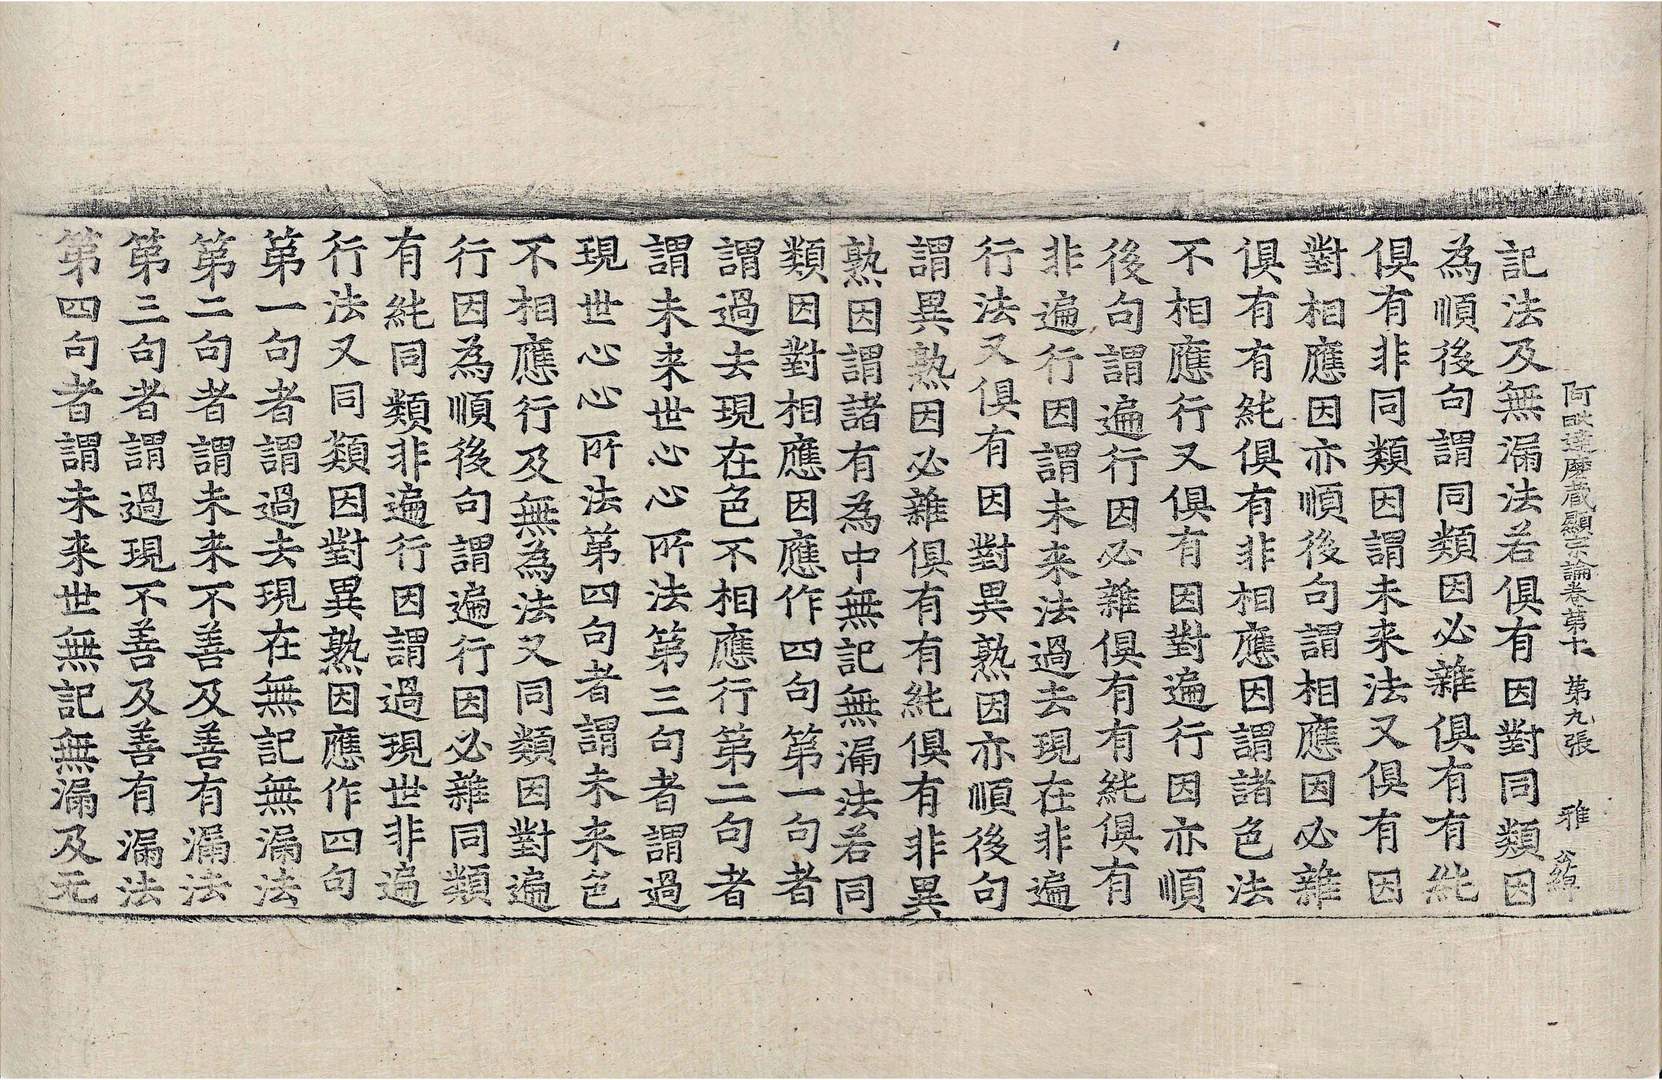 阿毗達摩藏顯宗論卷第十 第九張 雅
記法及無漏法若俱有因對同類因
為順後句謂同類因必雜俱有有純
俱有非同類因謂未来法又俱有因
對相應因亦順後句謂相應因必雜
俱有有純俱有非相應因謂諸色法
不相應行又俱有因對遍行因亦順
後句謂遍行因必雜俱有有純俱有
非遍行因謂未来法過去現在非遍
行法又俱有因對異熟因亦順後句
謂異熟因必雜俱有有純俱有非異
熟因謂諸有為中無記無漏法若同
類因對相應因應作四句第一句者
謂過去現在色不相應行第二句者
謂未来世心心所法第三句者謂過
現世心心所法第四句者謂未来色
不相應行及無為法又同類因對遍
行因為順後句謂遍行因必雜同類
有純同類非遍行因謂過現世非遍
行法又同類因對異熟因應作四句
第一句者謂過去現在無記無漏法
第二句者謂未来不善及善有漏法
第三句者謂過現不善及善有漏法
第四句者謂未来世無記無漏及无